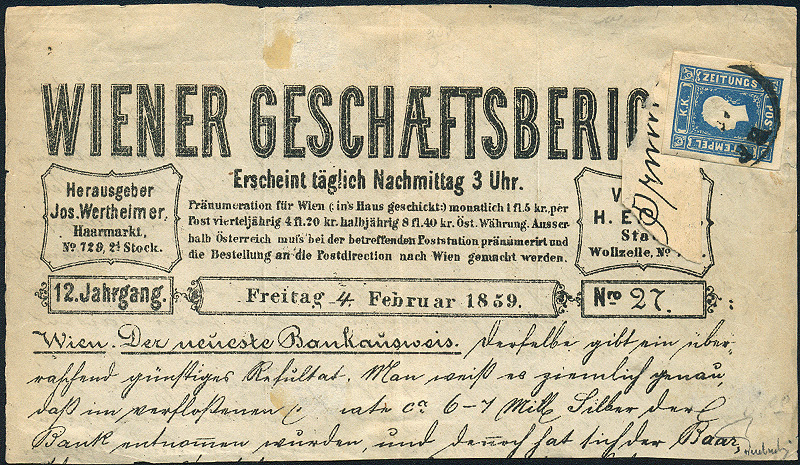 WIENER GESCHÆFTSBERIC
ZEITUNGS
K.K.
POST
STEMPEL
Erscheint täglich Nachmittag 3 Uhr.
Herausgeber
Jos. Wertheimer,
Haarmarkt,
No 729, 2t Stock.
Pränumeration für Wien (: in's Haus geschickt:) monatlich 1 fl. 5 kr. per
Post vierteljährig 4 fl. 20 kr. halbjährig 8 fl. 40 kr. Öst. Währung. Ausser-
halb Österreich muſs bei der betreffenden Poststation pränumerirt und
die Bestellung an die Postdirection nach Wien gemacht werden.
V
H. E
Sta
Wollzeile, No
12. Jahrgang.
Freitag 4 Februar 1859.
Nro 27.
Wien. Der neueste Bankausweis. Derselbe gibt ein über-
raschend günstiges Resultat. Man weiß es ziemlich genau,
daß im verfloßenen ate ca 6-7 Mill. Silber der
Bank entnommen wurden, und dennoch hat sich der Baar,